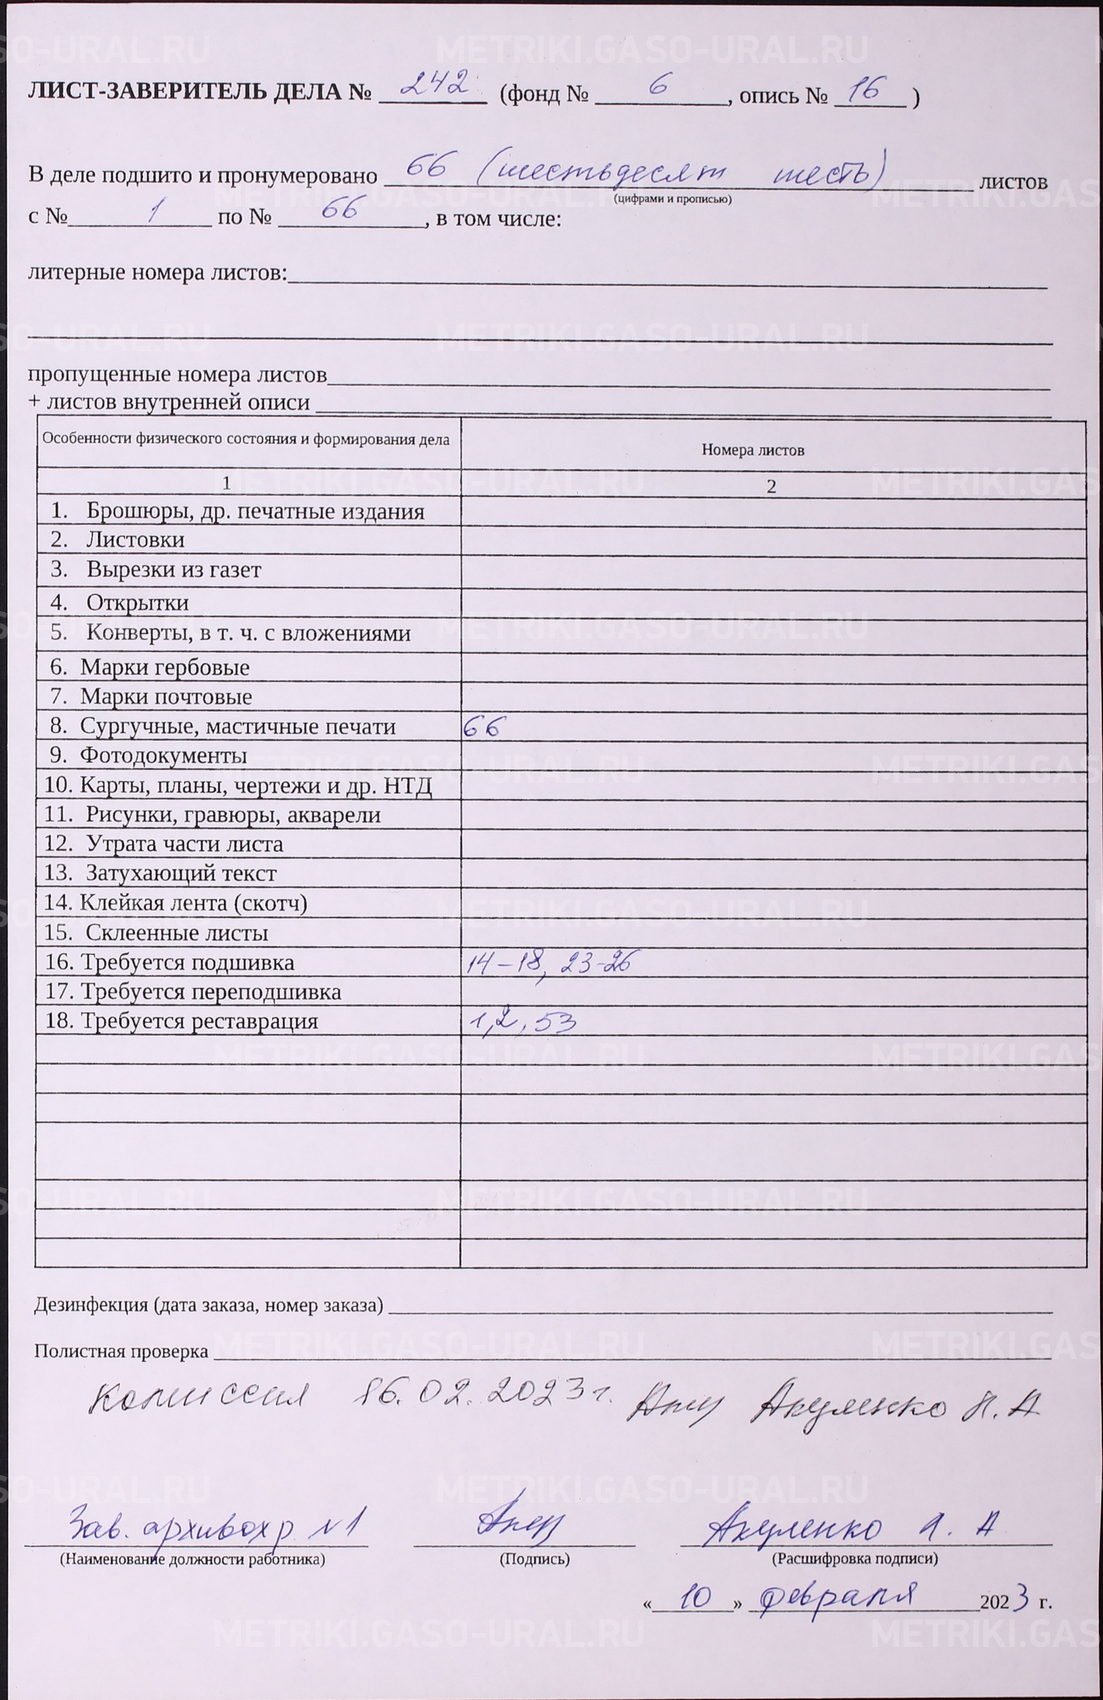 ЛИСТ-ЗАВЕРИТЕЛЬ ДЕЛА № 242 (фонд № 6, опись № 16)
В деле подшито и пронумеровано 66 (шестьдесят шесть) листов
(цифрами и прописью)
с № 1 по № 66, в том числе:
литерные номера листов:
пропущенные номера листов
+ листов внутренней описи
Особенности физического состояния и формирования дела Номера листов
1 2
1. Брошюры, др. печатные издания
2. Листовки
3. Вырезки из газет
4. Открытки
5. Конверты, в т. ч. с вложениями
6. Марки гербовые
7. Марки почтовые
8. Сургучные, мастичные печати 66
9. Фотодокументы
10. Карты, планы, чертежи и др. НТД
11. Рисунки, гравюры, акварели
12. Утрата части листа
13. Затухающий текст
14. Клейкая лента (скотч)
15. Склеенные листы
16. Требуется подшивка 14-18, 23-26
17. Требуется переподшивка
18. Требуется реставрация 1, 2, 53
Дезинфекция (дата заказа, номер заказа)
Полистная проверка
Комиссия 16.02.2023 г. Акуленко А
Зав. архивохр №1 Акуленко А
(Наименование должности работника) (Подпись) (Расшифровка подписи)
« 10 » февраля 2023 г.
METRIKI.GASO-URAL.RU